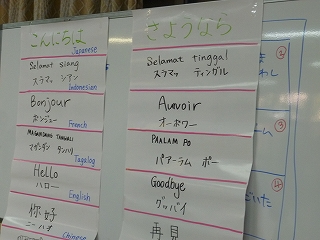 こんにちは
Japanese
Selamat siang
スラマッ シアン
Indonesian
Bonjour
ボンジュー
French
MAGANDANG TANGHALI
マガンダン タンハリ
Tagalog
Hello
ハロー
English
你好
ニーハオ
Chinese
さようなら
Selamat tinggal
スラマッ ティンガル
Auvoir
オーボワー
PAALAM PO
パアーラム ポー
Goodbye
グッバイ
再見
②
③
④